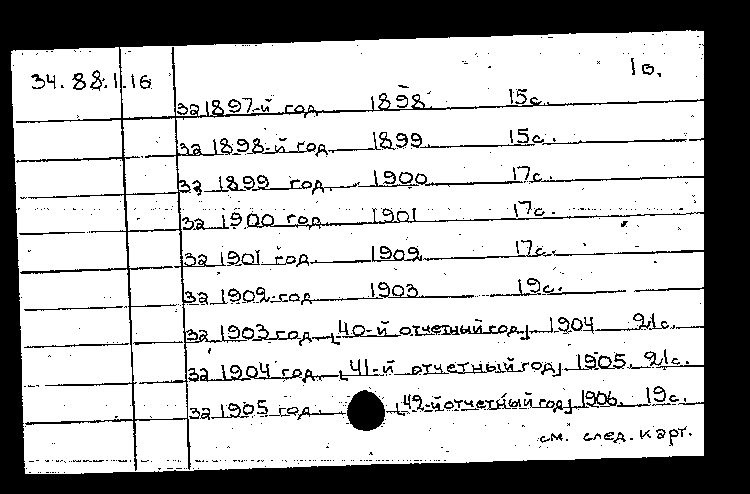 34.88.1.16 10.
за 1897-й год 1898 15с.
за 1898-й год 1899 15с.
за 1899 год 1900 17с.
за 1900 год 1901 17с.
за 1901 год 1902 17с.
за 1902 год 1903 19с.
за 1903 год [40-й отчетный год] 1904 21с.
за 1904 год [41-й отчетный год] 1905. 21с.
за 1905 год [42-й отчетный год] 1906. 19с.
см. след. карт.